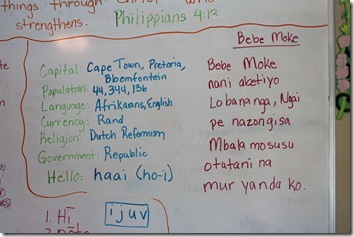 things through Christ who
strengthens.
Philippians 4:13
Capital: Cape Town, Pretoria,
Bloemfontein
Population: 44,344,136
Language: Afrikaans, English
Currency: Rand
Religion: Dutch Reformism
Government: Republic
Hello: haai (ho-i)
Bebe Moke
Bebe Moke
nani abetiyo
Lobananga, Ngai
pe nazongisa
Mbala mosusu
otutani na
mur yanda ko.
1. Hī
i j u v